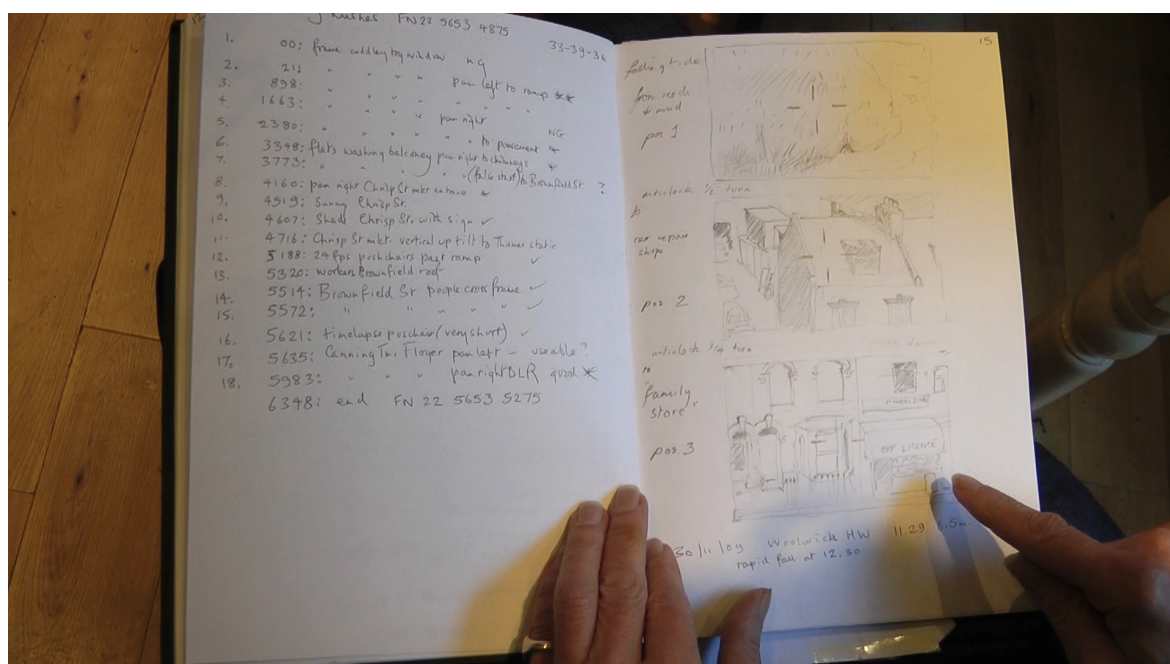 rushes FN 22 5653 4875
33-39-36
1. 00: frame cuddley toy window ng
2. 21: " " " "
3. 898: " " " " pan left to ramp **
4. 1663: " " " " " " "
5. 2380: " " " pan right NG
" " " " to pavement *
6. 3348: flats washing balconey pan right to chimneys *
7. 3773: " " " " " (false start) to Brownfield St ?
8. 4160: pan right Chrisp St mkt *
9. 4519: Sunny Chrisp St.
10. 4607: Shade Chrisp St. with sign ✓
11. 4716: Chrisp St mkt. vertical up tilt to Thames static
12. 5188: 24 fps pushchairs past ramp ✓
13. 5320: workers Brownfield roof
14. 5514: Brownfield St people cross frame ✓
15. 5572: " " " " " ✓
16. 5621: timelapse puschair (very short) ✓
17. 5635: Canning Tn. Flyer pan left - useable?
18. 5983: " " " pan right DLR good *
6348: end FN 22 5653 5275
15
falling tide
from reed
+ mud
pos 1
anticlock 1/2 turn
to
car repair
pos. 2
anticlock 1/4 turn
to
"family
store"
pos. 3
OFF LICENCE
30/11/09 Woolwich HW 11.29 6.5m.
rapid fall at 12.30